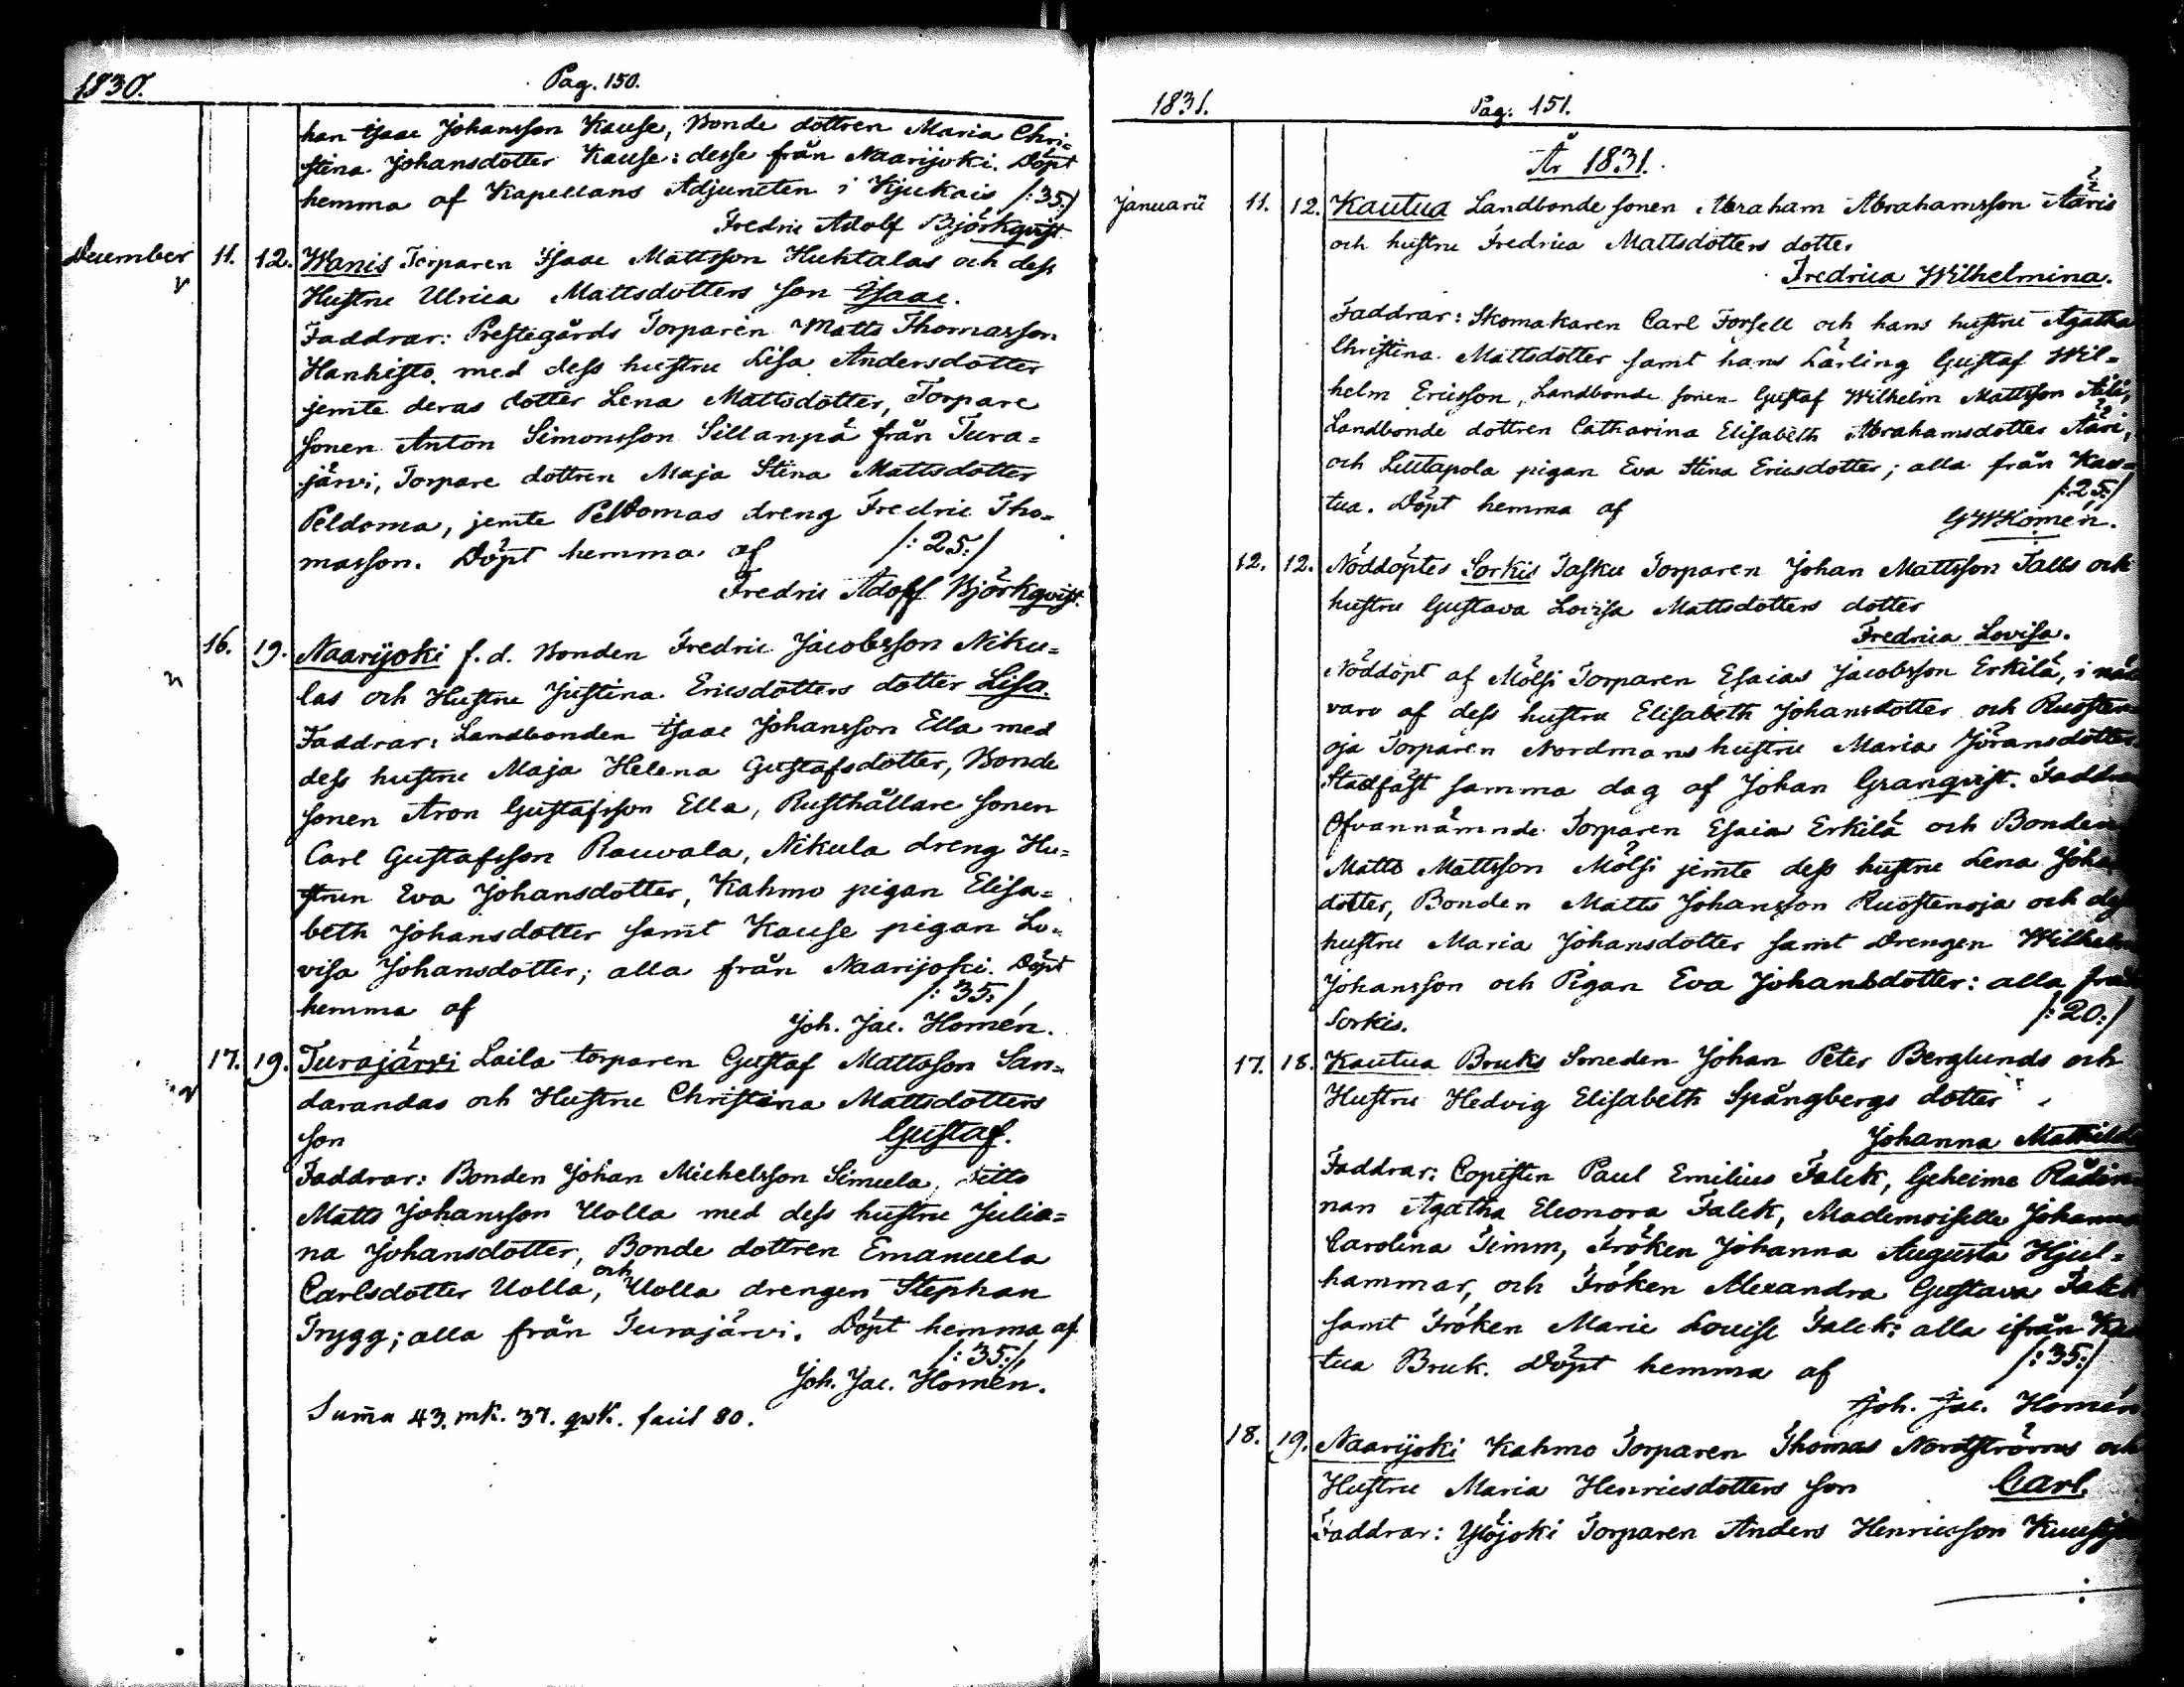 1830.
Pag. 150.
han Isaac Johansson Kause, Bonde dottren Maria Chri=
stina Johansdotter Kause: desse från Naarijoki. Döpt
hemma af Kapellans Adjuncten i Kjukais /:35:/
Fredric Adolf Björkqvist.
December 11. 12. Wanis Torparen Isaac Mattsson Huhtalas och dess
Hustru Ulrica Mattsdotters son Isaac.
Faddrar: Prestegårds Torparen Matts Thomasson
Hankisto med dess hustru Lisa Andersdotter
jemte deras dotter Lena Mattsdotter, Torpare
sonen Anton Simonsson Sillanpä från Tura=
järvi, Torpare dottren Maja Stina Mattsdotter
Peldoma, jemte Peldomas dreng Fredric Tho=
masson. Döpt hemma af /:25:/
Fredric Adolf Björkqvist.
16. 19. Naarijoki f.d. Bonden Fredric Jacobsson Niku=
las och Hustru Justina Ericsdotters dotter Lisa.
Faddrar: Landbonden Isaac Johansson Ella med
dess hustru Maja Helena Gustafsdotter, Bonde
sonen Aron Gustafsson Ella, Rusthållare sonen
Carl Gustafsson Rauvala, Nikula dreng Hu=
strun Eva Johansdotter, Kahmo pigan Elisa=
beth Johansdotter samt Kause pigan Lo=
visa Johansdotter; alla från Naarijoki. Döpt
hemma af /:35:/
Joh. Jac. Homén.
17. 19. Turajärvi Laila torparen Gustaf Mattsson San=
darandas och Hustru Christina Mattsdotters
son Gustaf.
Faddrar: Bonden Johan Michelsson Simula, Ditto
Matts Johansson Uolla med dess hustru Julia=
na Johansdotter, Bonde dottren Emanuela
Carlsdotter Uolla, och Uolla drengen Stephan
Trygg; alla från Turajärvi. Döpt hemma af
/:35:/
Joh. Jac. Homén.
Summa 43. mk. 37. qvk. facit 80.
1831.
Pag. 151.
År 1831.
Januarii 11. 12. Kautua Landbonde sonen Abraham Abrahamsson Ääris
och hustru Fredrica Mattsdotters dotter
Fredrica Wilhelmina.
Faddrar: Skomakaren Carl Forsell och hans hustru Agatha
Christina Mattsdotter samt hans Lärling Gustaf Wil=
helm Ericsson, Landbonde sonen Gustaf Wilhelm Mattsson
Landbonde dottren Catharina Elisabeth Abrahamsdotter Ääri,
och Luutapola pigan Eva Stina Ericsdotter; alla från Kau=
tua. Döpt hemma af /:25:/
GWHomén.
12. 12. Nöddöptes Sorkis Tasku Torparen Johan Mattsson Talls och
hustru Gustava Lovisa Mattsdotters dotter
Fredrica Lovisa.
Nöddöpt af Mölsi Torparen Esaias Jacobsson Erkilä, i när
varo af dess hustru Elisabeth Johansdotter och Ruosten
oja Torparen Nordmans hustru Maria Jöransdotter.
Stadfäst samma dag af Johan Granqvist. Faddrar
Ofvannämnde Torparen Esaia Erkilä och Bonden
Matts Mattsson Mölsi jemte dess hustru Lena Johan
dotter, Bonden Matts Johansson Ruostenoja och dess
hustru Maria Johansdotter samt Drengen Wilhelm
Johansson och Pigan Eva Johansdotter: alla från
Sorkis. /:20:/
17. 18. Kautua Bruks Smeden Johan Peter Berglunds och
Hustru Hedvig Elisabeth Spångbergs dotter
Johanna Mathilda
Faddrar: Copisten Paul Emilius Falck, Geheime Rådin=
nan Agatha Eleonora Falck, Mademoiselle Johanna
Carolina Timm, Fröken Johanna Augusta Hjul=
hammar, och Fröken Alexandra Gustava Falck
samt Fröken Marie Louise Falck: alla ifrån Kau
tua Bruk. Döpt hemma af /:35:/
Joh. Jac. Homén
18. 19. Naarijoki Kahmo Torparen Thomas Nordströms och
Hustru Maria Henricsdotters son Carl.
Faddrar: Yläjoki Torparen Anders Henricsson